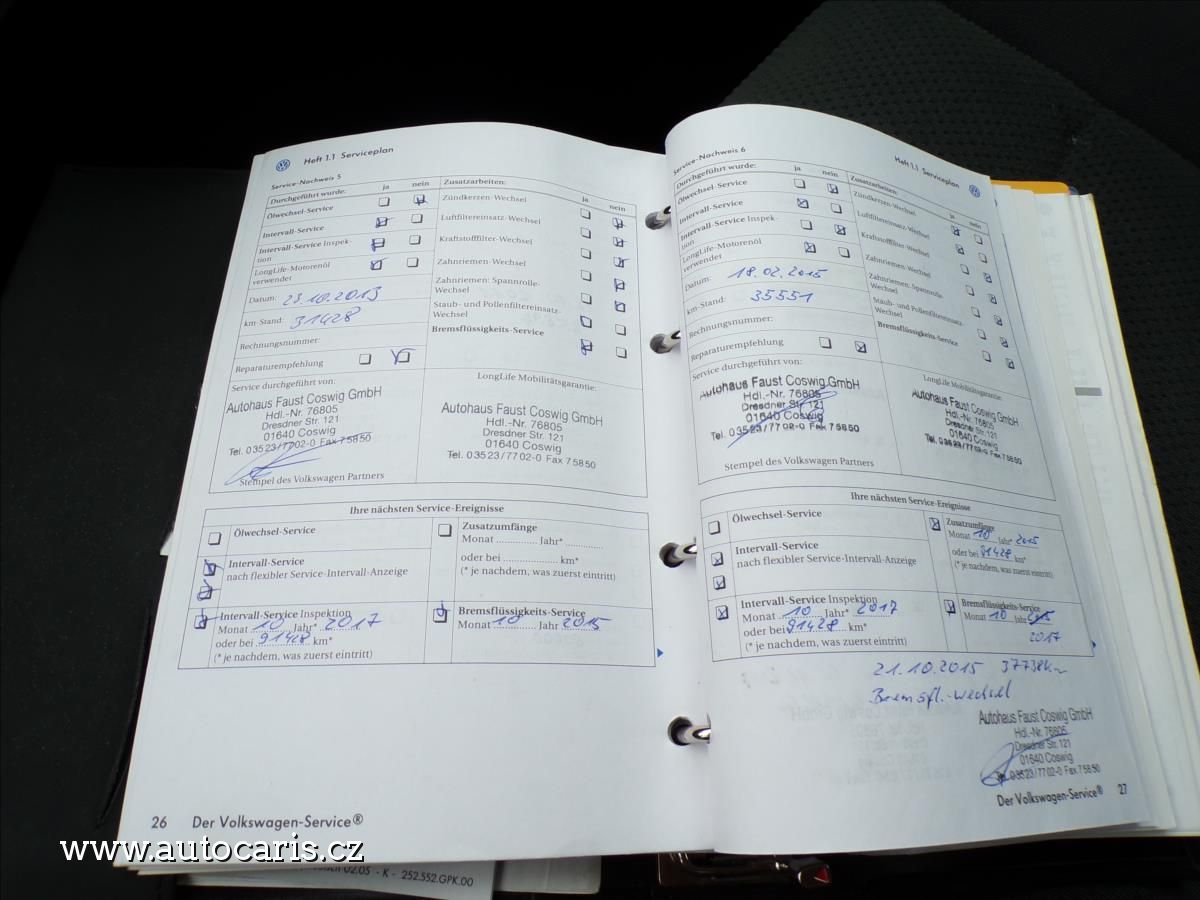 Heft 1.1 Serviceplan
Service-Nachweis 5
Durchgeführt wurde: ja nein
Ölwechsel-Service
Intervall-Service
Intervall-Service Inspek-
tion
LongLife-Motorenöl
verwendet
Datum: 23.10.2013
km-Stand: 31428
Rechnungsnummer:
Reparaturempfehlung
Zusatzarbeiten: ja nein
Zündkerzen-Wechsel
Luftfiltereinsatz-Wechsel
Kraftstofffilter-Wechsel
Zahnriemen-Wechsel
Zahnriemen: Spannrolle-
Wechsel
Staub- und Pollenfiltereinsatz-
Wechsel
Bremsflüssigkeits-Service
Service durchgeführt von:
Autohaus Faust Coswig GmbH
Hdl.-Nr. 76805
Dresdner Str. 121
01640 Coswig
Tel. 03523/7702-0 Fax 75850
Stempel des Volkswagen Partners
LongLife Mobilitätsgarantie:
Autohaus Faust Coswig GmbH
Hdl.-Nr. 76805
Dresdner Str. 121
01640 Coswig
Tel. 03523/7702-0 Fax 75850
Ihre nächsten Service-Ereignisse
Ölwechsel-Service
Intervall-Service
nach flexibler Service-Intervall-Anzeige
Intervall-Service Inspektion
Monat 10 Jahr* 2017
oder bei 91428 km*
(* je nachdem, was zuerst eintritt)
Zusatzumfänge
Monat ............ Jahr* ............
oder bei ............ km*
(* je nachdem, was zuerst eintritt)
Bremsflüssigkeits-Service
Monat 10 Jahr 2015
26 Der Volkswagen-Service®
Heft 1.1 Serviceplan
Service-Nachweis 6
Durchgeführt wurde: ja nein
Ölwechsel-Service
Intervall-Service
Intervall-Service Inspek-
tion
LongLife-Motorenöl
verwendet
Datum: 18.02.2015
km-Stand: 35551
Rechnungsnummer:
Reparaturempfehlung
Zusatzarbeiten: ja nein
Zündkerzen-Wechsel
Luftfiltereinsatz-Wechsel
Kraftstofffilter-Wechsel
Zahnriemen-Wechsel
Zahnriemen: Spannrolle-
Wechsel
Staub- und Pollenfiltereinsatz-
Wechsel
Bremsflüssigkeits-Service
Service durchgeführt von:
Autohaus Faust Coswig GmbH
Hdl.-Nr. 76805
Dresdner Str. 121
01640 Coswig
Tel. 03523/7702-0 Fax 75850
Stempel des Volkswagen Partners
LongLife Mobilitätsgarantie:
Autohaus Faust Coswig GmbH
Hdl.-Nr. 76805
Dresdner Str. 121
01640 Coswig
Tel. 03523/7702-0 Fax 75850
Ihre nächsten Service-Ereignisse
Ölwechsel-Service
Intervall-Service
nach flexibler Service-Intervall-Anzeige
Intervall-Service Inspektion
Monat 10 Jahr* 2017
oder bei 91428 km*
(* je nachdem, was zuerst eintritt)
Zusatzumfänge
Monat 10 Jahr* 2015
oder bei 91428 km*
(* je nachdem, was zuerst eintritt)
Bremsflüssigkeits-Service
Monat 10 Jahr 2015
2017
21.10.2015 37738km
Bremsfl.-Wechsel
Autohaus Faust Coswig GmbH
Hdl.-Nr. 76805
Dresdner Str. 121
01640 Coswig
Tel. 03523/7702-0 Fax 75850
Der Volkswagen-Service® 27
02.05 - K - 252.552.GPK.00
www.autocaris.cz